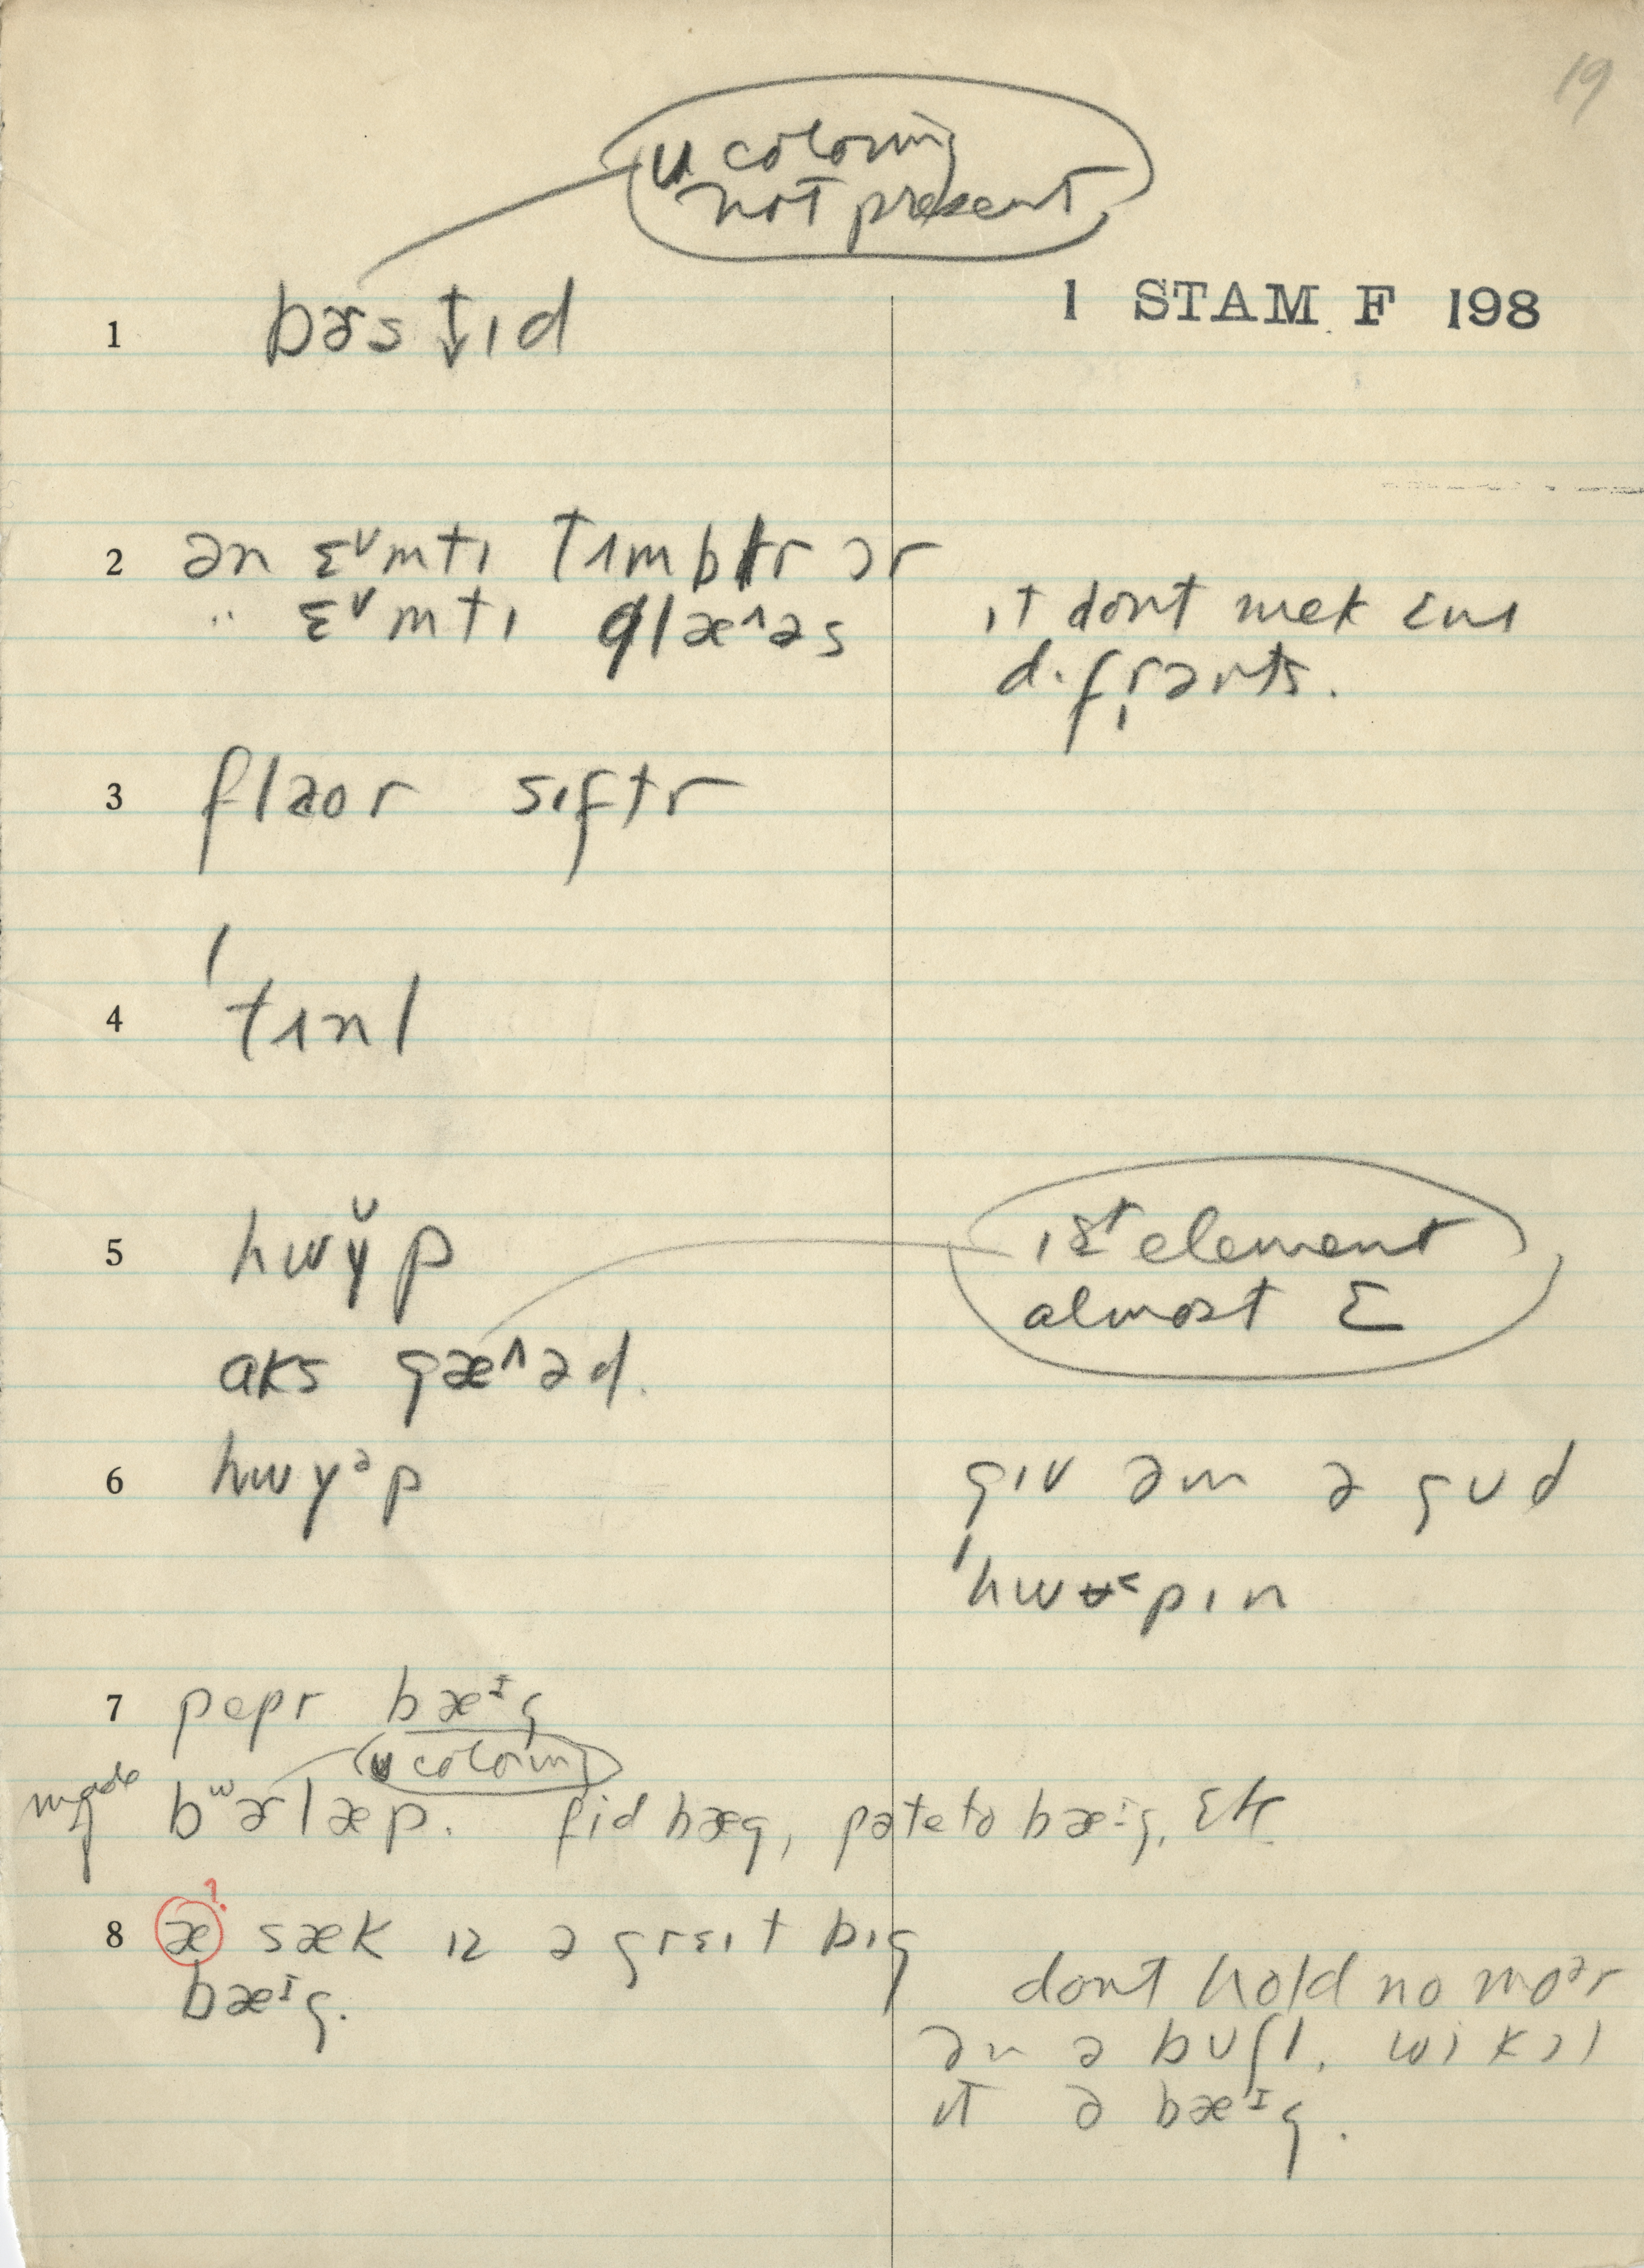 19
u coloring
not present
1 STAM F 198
1 bɚs ↓ıd
2 ən ɛᵛmtı tımblr ɔr
" ɛᵛmtı glæ^əs
ıt dont mek ɛnı
dıfrənts.
3 flaor sıftr
4 'tınl
5 hwy̆p
1st element
almost Σ
aks gæ^əd.
6 hwyᵊp
gıv əm ə gud
'hwʉ˂pın
7 pepr bæᴵg
u coloring
made bʷɚlæp. fid bæg, pəteto bæᴵg, Etc
8 æ ? sæk ız ə grɛıt bıg
bæᴵg.
dont hold no moᵊr
ən ə buʃl. wi kɔl
ıt ə bæᴵg.